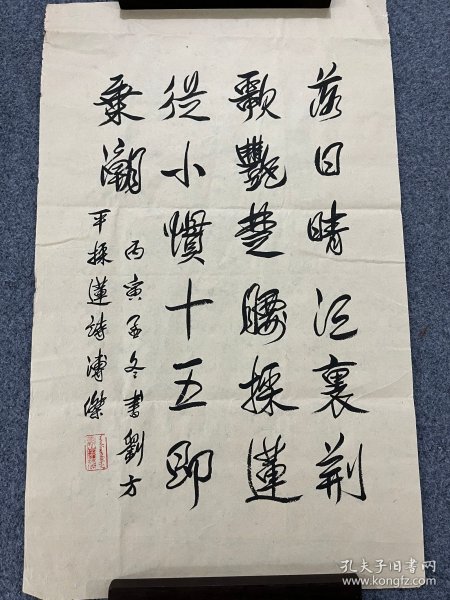 落日晴江裏荆
歌艷楚腰採蓮
從小慣十五即
乗潮
丙寅孟冬書劉方
平採蓮詩溥傑
孔夫子旧书网
www.kongfz.com